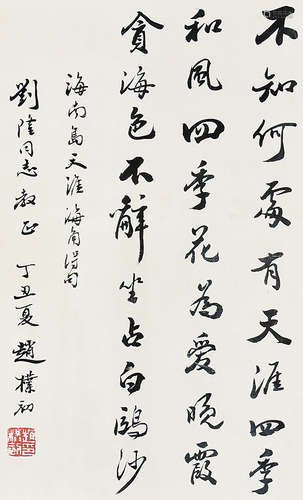 不知何處有天涯四季
和風四季花為愛晚霞
貪海色不辭坐占白鷗沙
海南島天涯海角得句
劉隆同志教正 丁丑夏 趙樸初